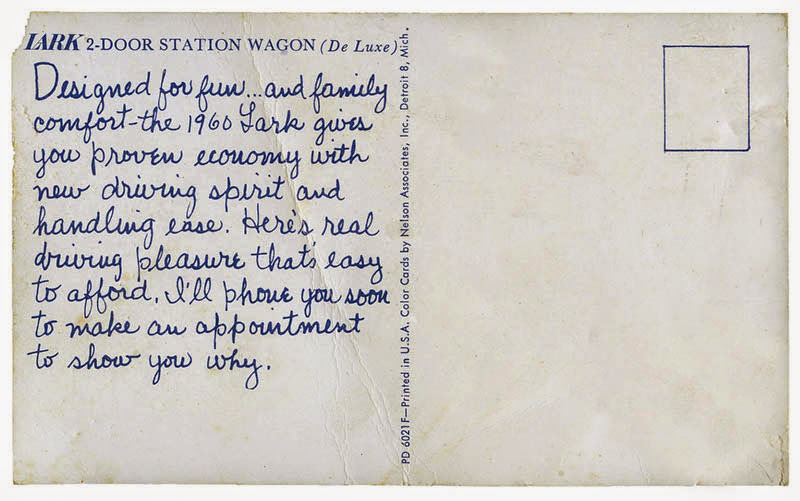 LARK 2-DOOR STATION WAGON (De Luxe)
Designed for fun...and family
comfort-the 1960 Lark gives
you proven economy with
new driving spirit and
handling ease. Here's real
driving pleasure that's easy
to afford. I'll phone you soon
to make an appointment
to show you why.
PD 6021F—Printed in U.S.A. Color Cards by Nelson Associates, Inc., Detroit 8, Mich.